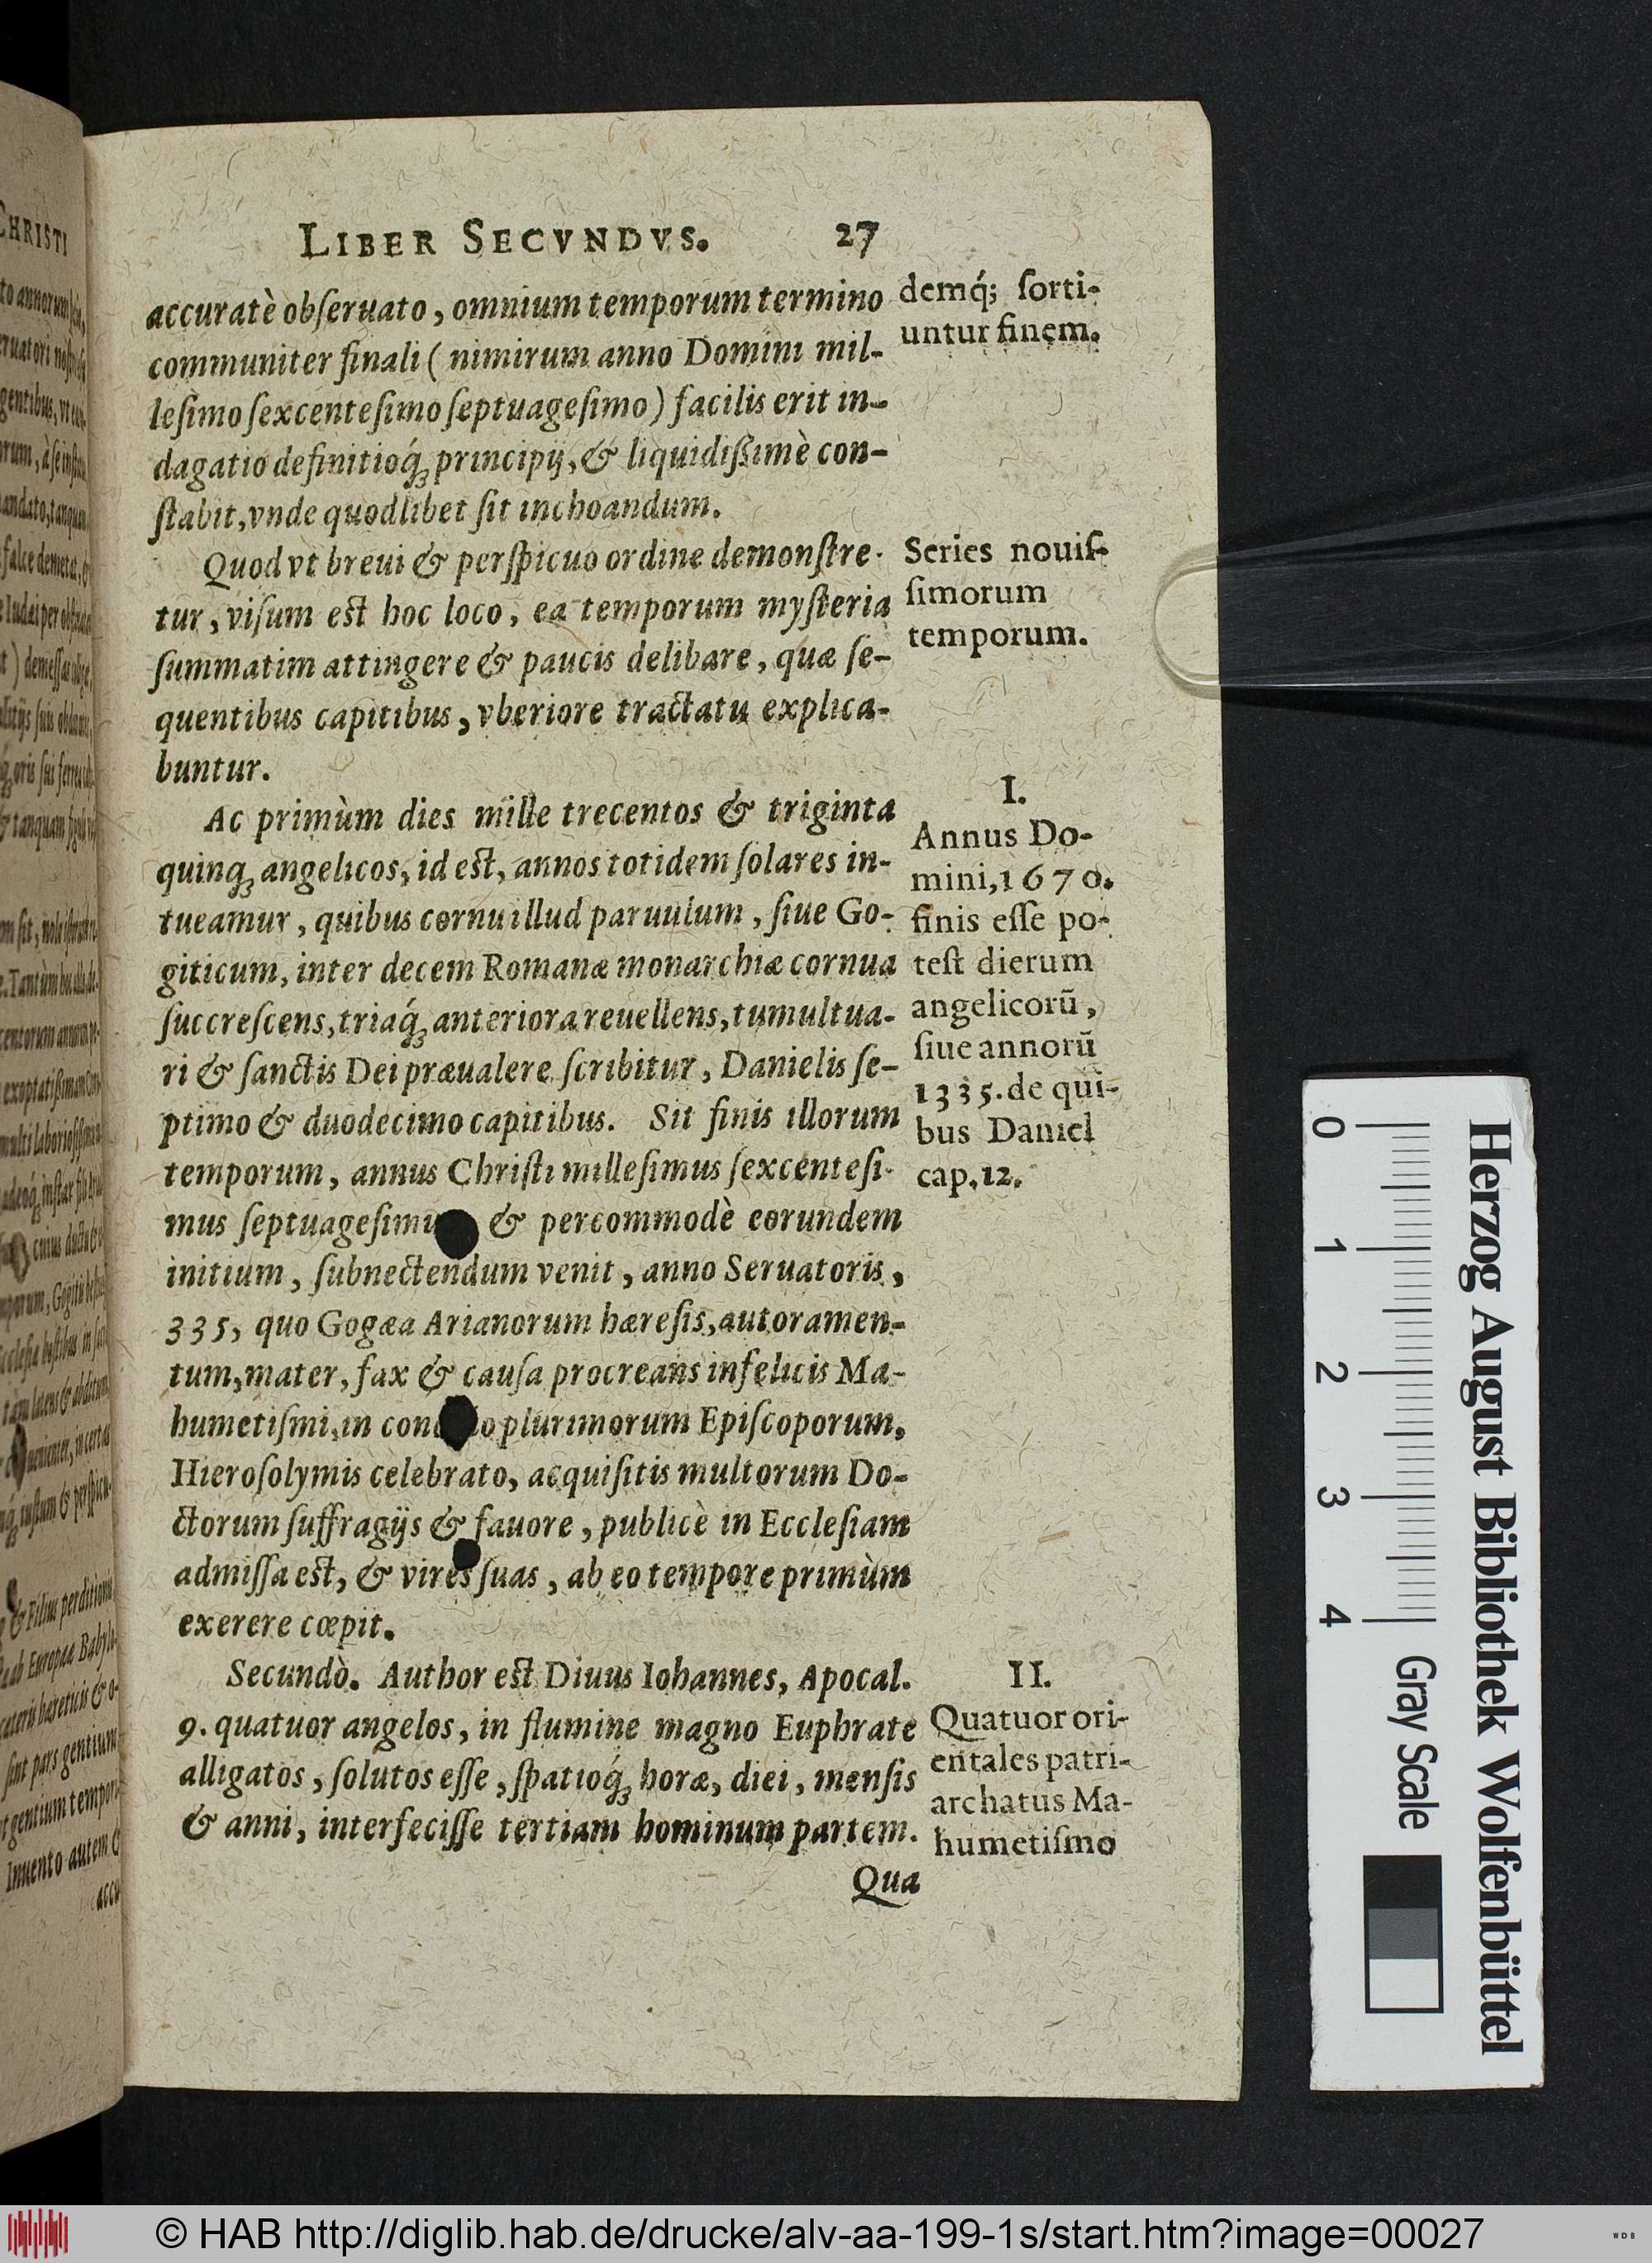 LIBER SECVNDVS. 27
accuratè obſeruato, omnium temporum termino
communiter finali (nimirum anno Domini mil-
leſimo ſexcenteſimo ſeptuageſimo) facilis erit in-
dagatio definitioq́ꝫ principij, & liquidißimè con-
ſtabit, vnde quodlibet ſit inchoandum.
Quod vt breui & perſpicuo ordine demonſtre-
tur, viſum est hoc loco, ea temporum myſteria
ſummatim attingere & paucis delibare, quæ ſe-
quentibus capitibus, vberiore tractatu explica-
buntur.
Ac primùm dies mille trecentos & triginta
quinqꝫ angelicos, id est, annos totidem ſolares in-
tueamur, quibus cornu illud paruulum, ſiue Go-
giticum, inter decem Romanæ monarchiæ cornua
ſuccreſcens, triaq́ꝫ anteriora reuellens, tumultua-
ri & ſanctis Dei præualere ſcribitur, Danielis ſe-
ptimo & duodecimo capitibus. Sit finis illorum
temporum, annus Chriſti milleſimus ſexcenteſi-
mus ſeptuageſimu & percommodè eorundem
initium, ſubnectendum venit, anno Seruatoris,
335, quo Gogæa Arianorum hæreſis, autoramen-
tum, mater, fax & cauſa procreans infelicis Ma-
humetiſmi, in con lo plurimorum Epiſcoporum,
Hieroſolymis celebrato, acquiſitis multorum Do-
ctorum ſuffragijs & fauore, publicè in Eccleſiam
admiſſa est, & vires ſuas, ab eo tempore primùm
exerere cœpit.
Secundò. Author est Diuus Iohannes, Apocal.
9. quatuor angelos, in flumine magno Euphrate
alligatos, ſolutos eſſe, ſpatioq́ꝫ horæ, diei, menſis
& anni, interfeciſſe tertiam hominum partem.
Qua
demq́; ſorti-
untur finem.
Series nouiſ-
ſimorum
temporum.
I.
Annus Do-
mini, 1670.
finis eſſe po-
teſt dierum
angelicorū,
ſiue annorū
1335. de qui-
bus Daniel
cap. 12.
II.
Quatuor ori-
entales patri-
archatus Ma-
humetiſmo
Herzog August Bibliothek Wolfenbüttel
0 1 2 3 4 Gray Scale
© HAB http://diglib.hab.de/drucke/alv-aa-199-1s/start.htm?image=00027
WDB